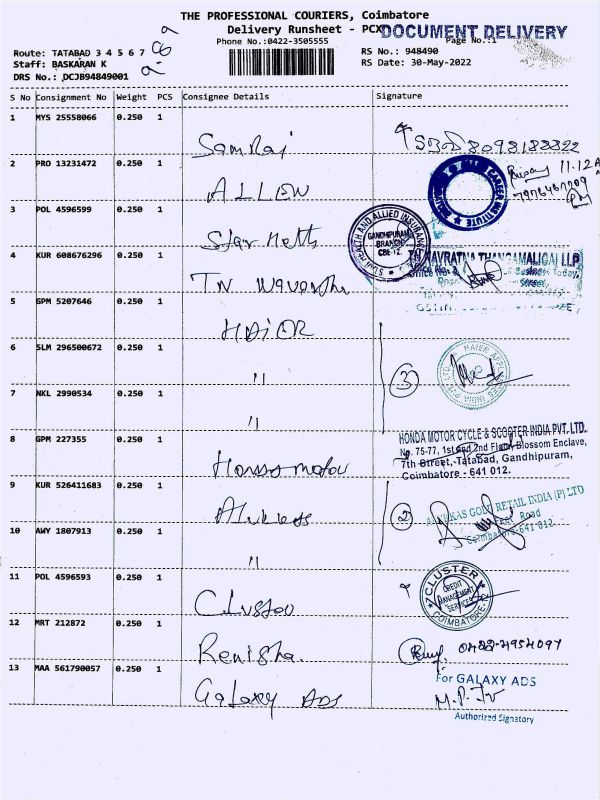 THE PROFESSIONAL COURIERS, Coimbatore
Delivery Runsheet - PCX
DOCUMENT DELIVERY
Phone No.:0422-3505555
Page No.:1
Route: TATABAD 3 4 5 6 7
RS No.: 948490
Staff: BASKARAN K
RS Date: 30-May-2022
DRS No.: DCJB94849001
S No Consignment No Weight PCS Consignee Details Signature
1 MYS 25558066 0.250 1
Samraj 8098188822
2 PRO 13231472 0.250 1
ALLEN CAREER INSTITUTE 11.12
3 POL 4596599 0.250 1
Star Helth HEALTH AND ALLIED INSURANCE GANDHIPURAM BRANCH CBE-12.
4 KUR 608676296 0.250 1
TN NAVRATNA THANGAMALIGAI LLP
5 GPM 5207646 0.250 1
HAiER
6 SLM 296500672 0.250 1
" 3 HAIER APPLIANCES INDIA PVT. LTD.
7 NKL 2990534 0.250 1
"
8 GPM 227355 0.250 1
HONDA MOTOR CYCLE & SCOOTER INDIA PVT. LTD.
No. 75-77, 1st and 2nd Floor, Blossom Enclave,
7th Street, Tatabad, Gandhipuram,
Coimbatore - 641 012.
9 KUR 526411683 0.250 1
2 GOLD RETAIL INDIA (P) LTD
Road
Coimbatore-641 012
10 AWY 1807913 0.250 1
"
11 POL 4596593 0.250 1
CLUSTER CREDIT MANAGEMENT SERVICES COIMBATORE
12 MRT 212872 0.250 1
Renisha. 0422-4954097
13 MAA 561790057 0.250 1
Galaxy ADS
For GALAXY ADS
Authorized Signatory